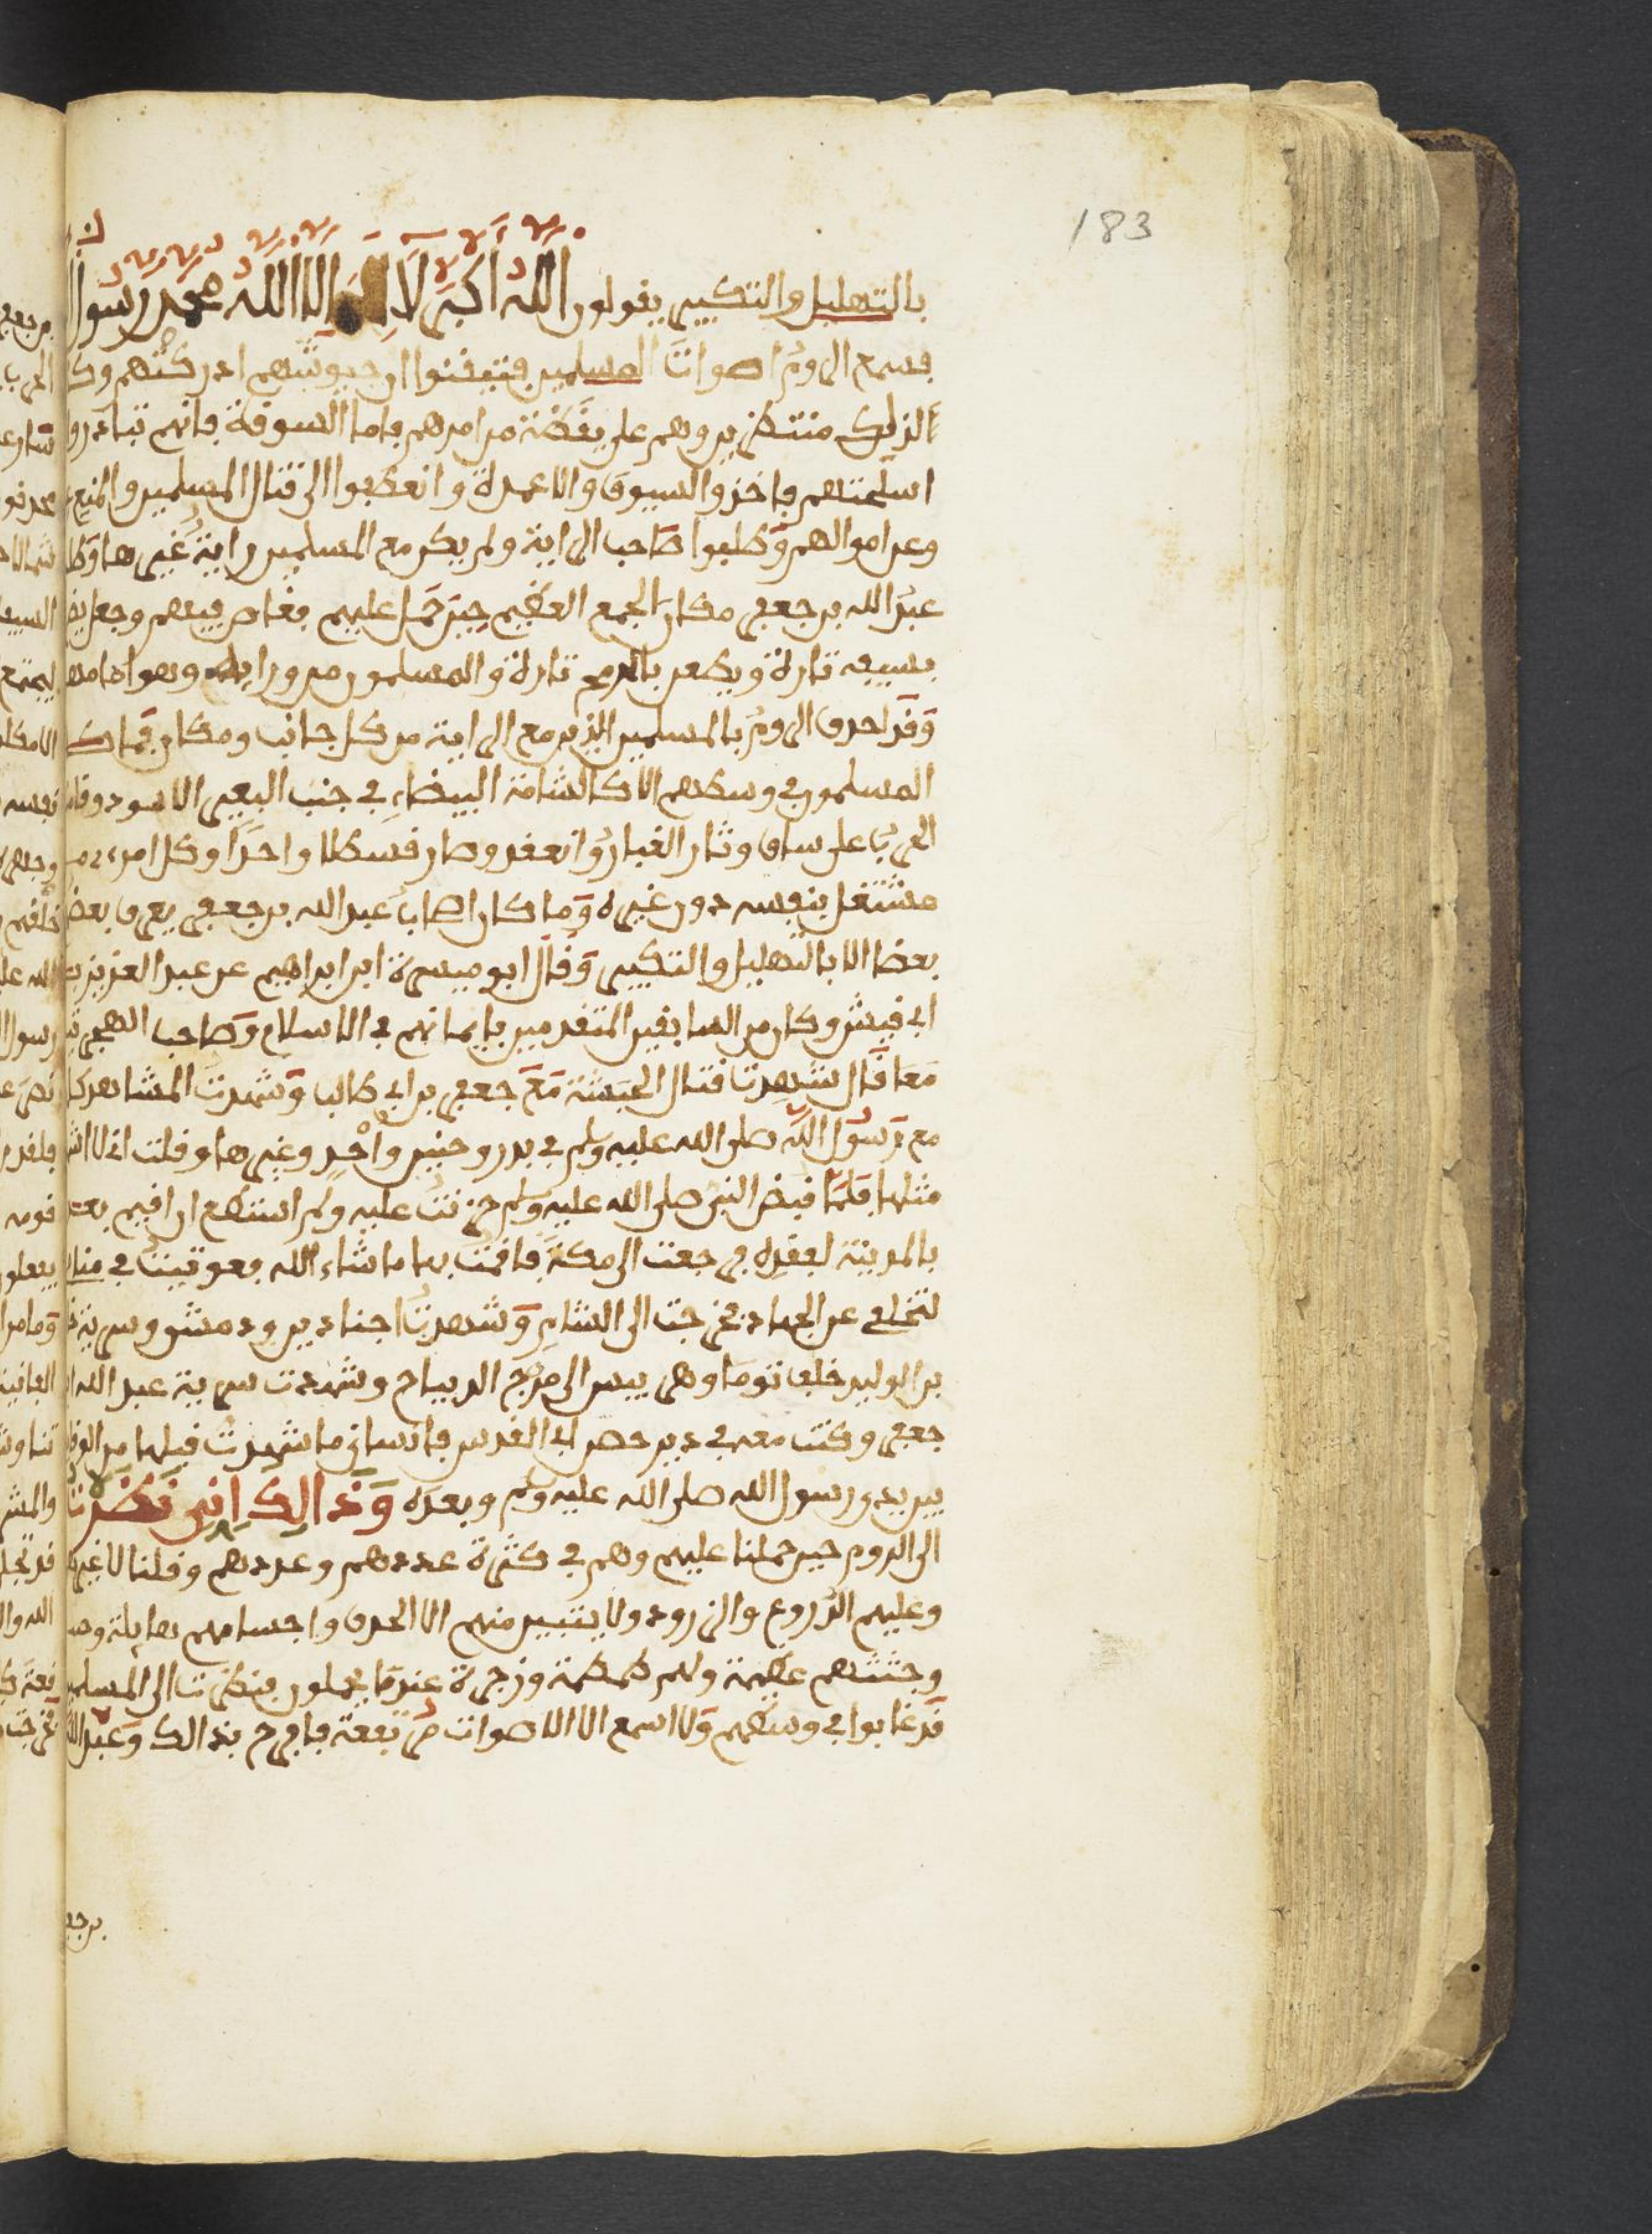 183
بالتهليل والتكبير يقولون الله اكبر لا اله الا الله محمد رسول
فسمع الروم اصوات المسلمين فتيقنوا ان جيوشهم ادركتهم وك
لذلك منتظرين وهم على يقظة من امرهم فاما السوقة فانهم تبادروا
اسلحتهم فاخذوا السيوف والاعمدة وانعطفوا الى قتال المسلمين والمنع
وعن اموالهم وطلبوا صاحب الراية ولم يكن مع المسلمين راية غيرها وكا
عبد الله بن جعفر مكان الجمع العظيم حين حمل عليهم فغاص فيهم وجعل يض
بسيفه تارة ويطعن بالرمح تارة والمسلمون من ورايه وهو امامهم
وقد احدق الروم بالمسلمين الذين مع الراية من كل جانب ومكان فما ك
المسلمون في وسطهم الا كالشامة البيضاء في جنب البعير الاسود وقام
الحرب على ساق وثار الغبار وانعقد وصار قسطلا واحدا وكل امرء
مشتغل بنفسه دون غيره وما كان اصحاب عبد الله بن جعفر يعرف بعض
بعضا الا بالتهليل والتكبير وقال ابو ميسرة ابن ابراهيم عن عبد العزيز ب
ابي قيش وكان من السابقين المتقدمين بايمانهم في الاسلام وصاحب الهجر
معا قال شهدت قتال الحبشة مع جعفر بن ابي طالب وشهدت المشاهد كل
مع رسول الله صلى الله عليه وسلم في بدر وحنين واحد وغيرها وقلت اني لا اش
مثلها فلما قبض النبي صلى الله عليه وسلم حزنت عليه ولم استطع ان اقيم بعد
بالمدينة لفقده فرجعت الى مكة فاقمت بها ما شاء الله فعوتبت في منا
لتخلفي عن الجهاد فخرجت الى الشام وشهدت اجنادين ودمشق وسرية
بن الوليد خلف توما وهربيس الى مرج الديباح وشهدت سرية عبد الله
جعفر وكنت معه في دير حصن ابي القدس فانساني ما شهدت قبلها من الوقا
بين يدي رسول الله صلى الله عليه وسلم وبعده وذالك اني نظرت
الى الروم حين حملنا عليهم وهم في كثرة عددهم وعددهم وقلنا لا غير
وعليهم الدروع والزرود ولا يتبين منهم الا الحدق واجسامهم هايلة وه
وجثثهم عظيمة ولهم طمطمة وزجرة عندما يحملون فنظرت الى المسلمين
قد غابوا في وسطهم ولا اسمع الا الاصوات من تفعة فافرح بذالك وعبد الله
بن جع